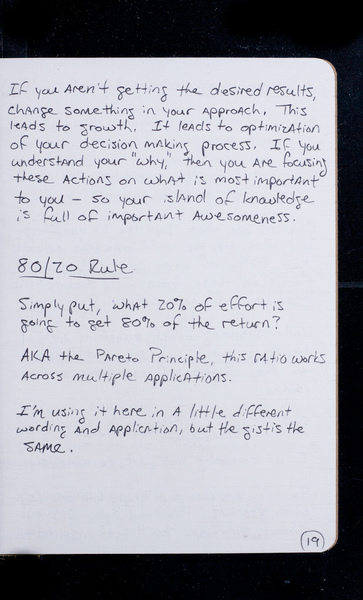 If you aren't getting the desired results,
change something in your approach. This
leads to growth. It leads to optimization
of your decision making process. If you
understand your "why," then you are focusing
these actions on what is most important
to you – so your island of knowledge
is full of important awesomeness.
80/20 Rule
Simply put, what 20% of effort is
going to get 80% of the return?
AKA the Pareto Principle, this ratio works
across multiple applications.
I'm using it here in a little different
wording and application, but the gist is the
same.
19